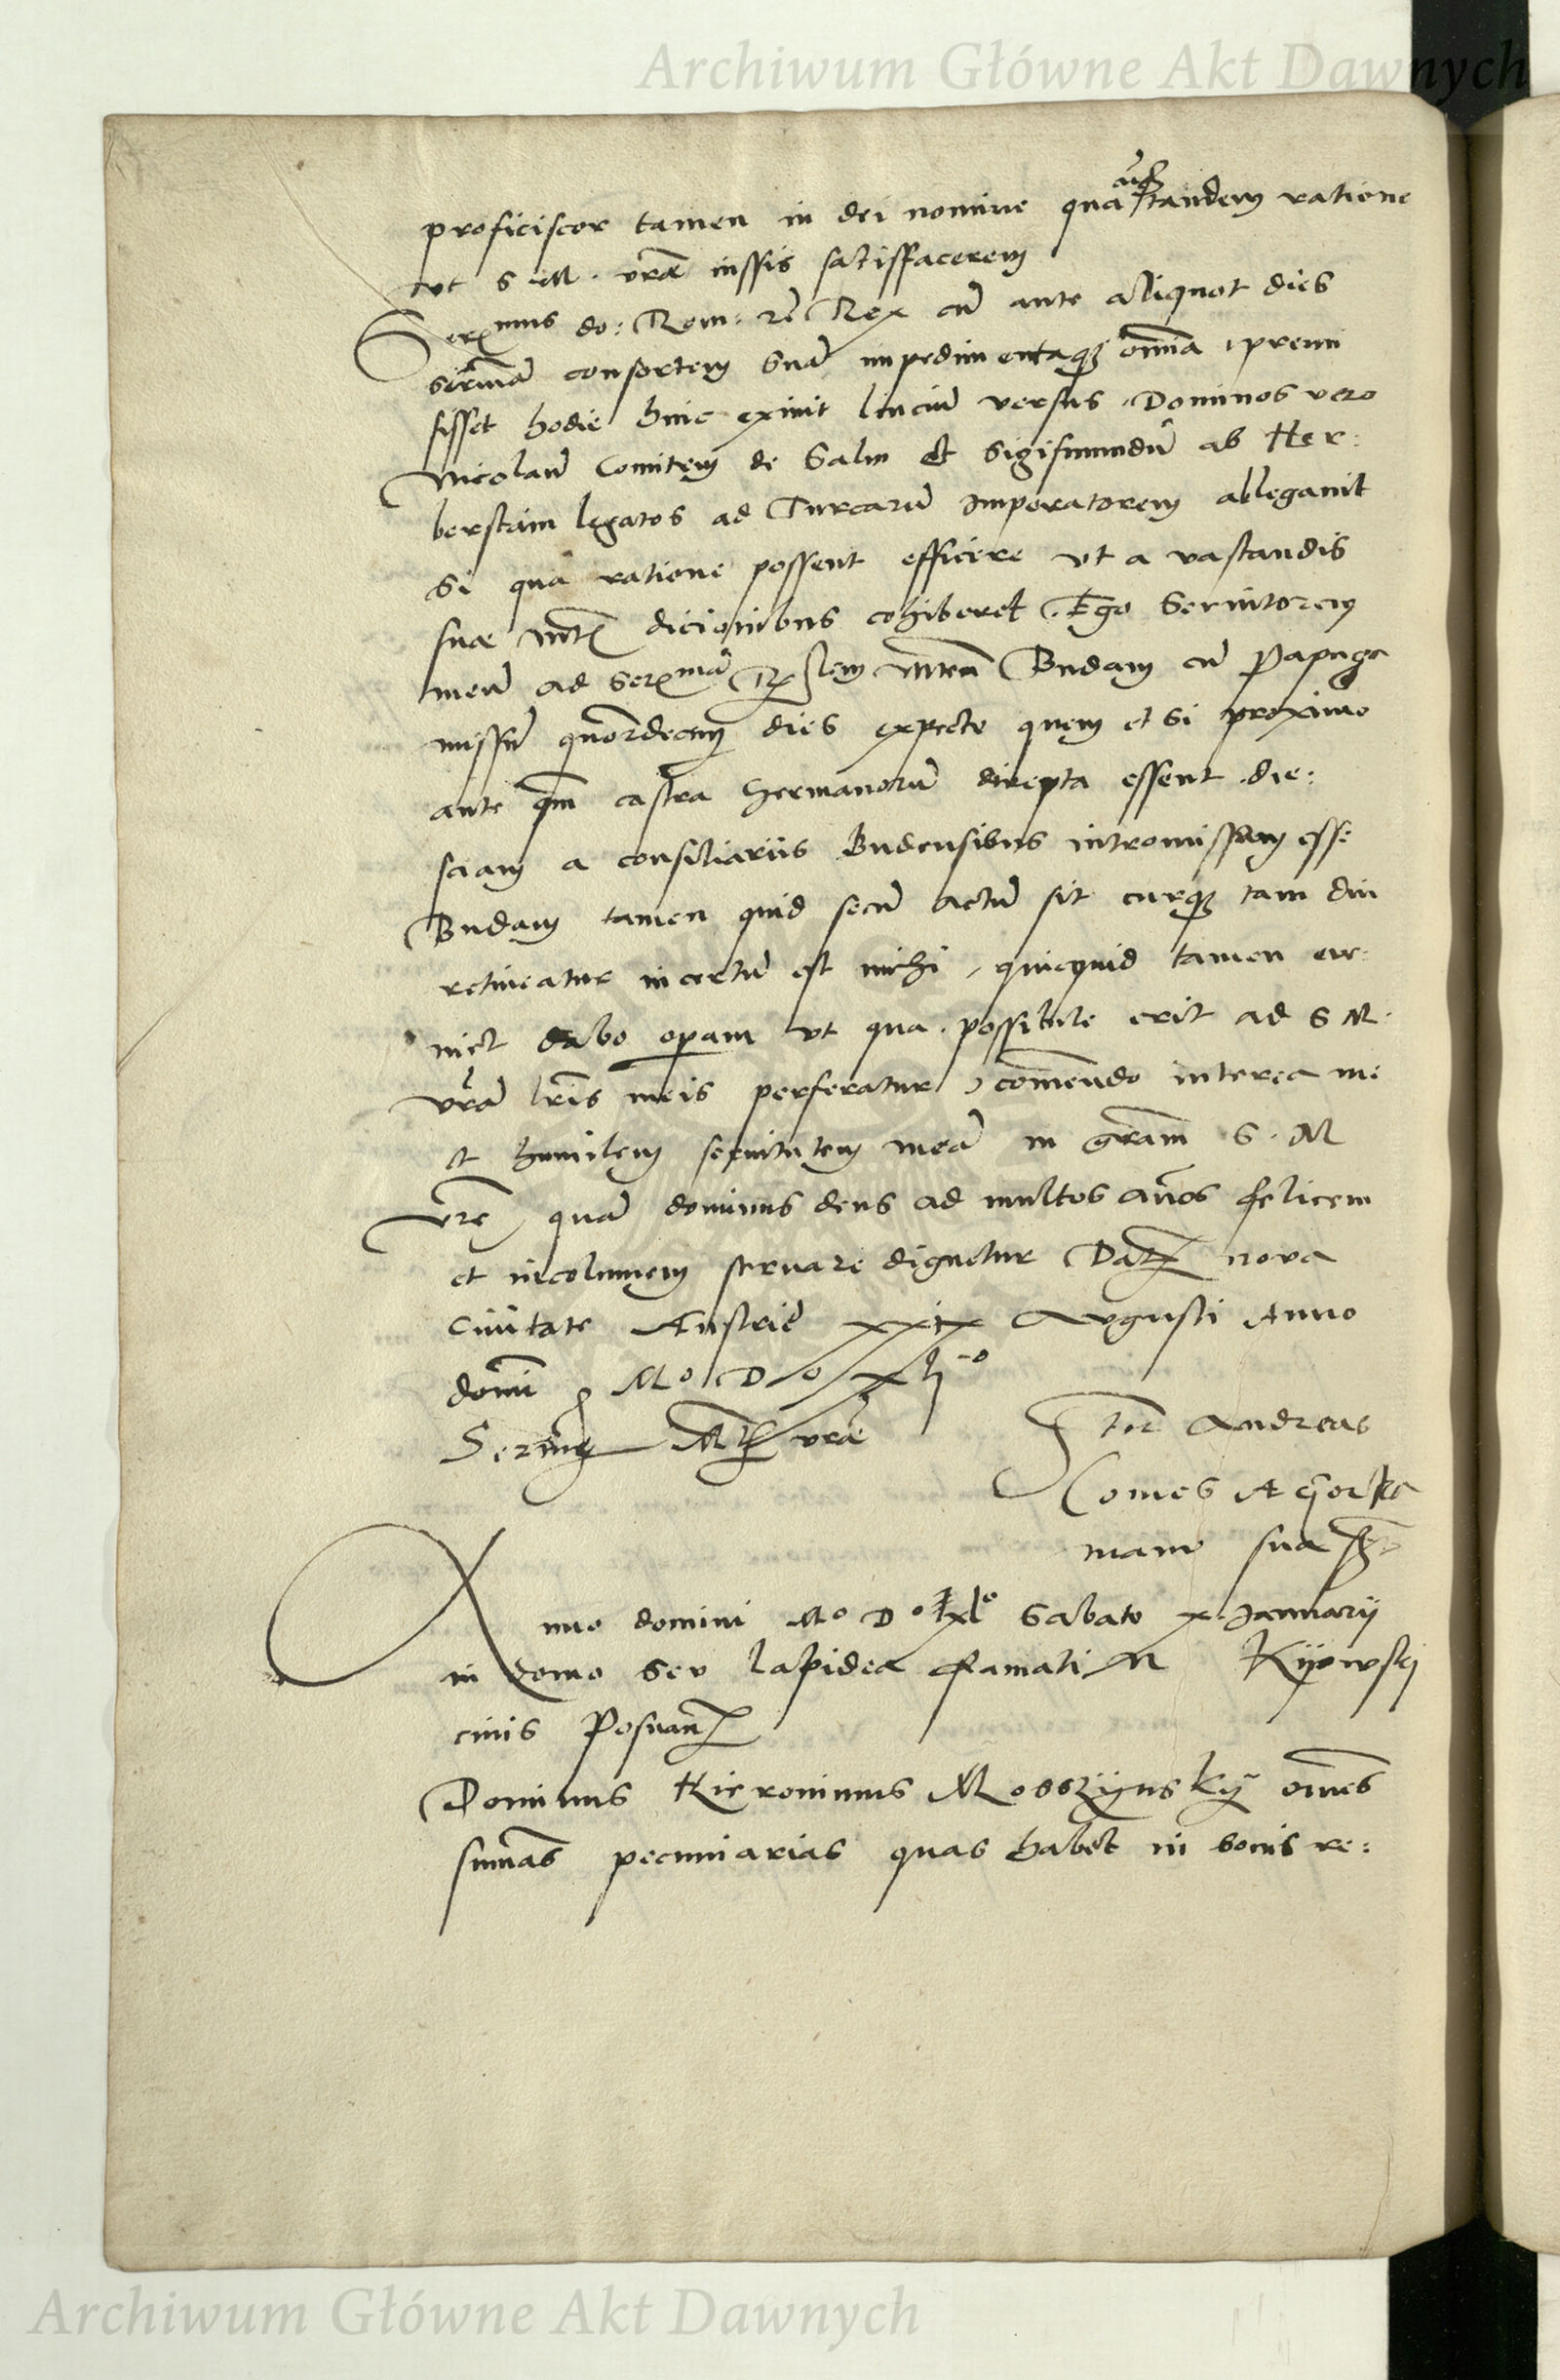 Archiwum Główne Akt Dawnych
proficiscor tamen in dei nomine qua cuꝗ tandem ratione
vt S. M. vrãe iussis satisfacerem
Serᵐᵘˢ do: Rom: rẽ Rex cũ ante aliquot dies
serᵐᵃ̃ consortem suã impedimentaqꝫ om̃ia premi
sisset hodie hinc exiuit linciũ versus. Dominos vero
Nicolaũ Comitem de Salm et Sigismundũ ab Her:
berstaim legatos ad Turcarũ Imperatorem ablegauit
si qua ratione possent efficere vt a vastandis
suae Mtꝭ dicionibus cohiberet. Ego Seruitorem
meũ ad Serᵐᵃ̃ Rꝭlem Mteã Budam cũ Papuga
missũ quõrdecim dies expecto quem et si proximo
ante qm̃ castra Germanorũ direpta essent die:
sciam a consiliariis Budensibus intromissum esse
Budam tamen quid secũ actũ sit curqꝫ tam diu
retineatur incertũ est mihi, quicquid tamen eue:
niet dabo operam vt qua possibile erit ad S M.
vrãm lrĩs meis perferatur, com̃endo interea me
et humilem seruitutem meã in gram̃ S. M
vrẽ, quã dominus deus ad multos años felicem
et incolumem seruare dignetur Datꝭ noua
Ciuitate Austriẽ xxix Augusti Anno
domĩ Mº Dº xljº
Serm̃e Mtꝭ vrãe
Stor Andreas
Comes A Gorka
manu sua sst
Anno domini Mº Dº xlº Sabato x Januarij
in domo seu lapidea famati M Kijowskj
ciuis Posnañ
Dominus Hieronimus Mosszijnskÿ om̃es
sum̃as pecuniarias quas habet in bonis re:
Archiwum Główne Akt Dawnych